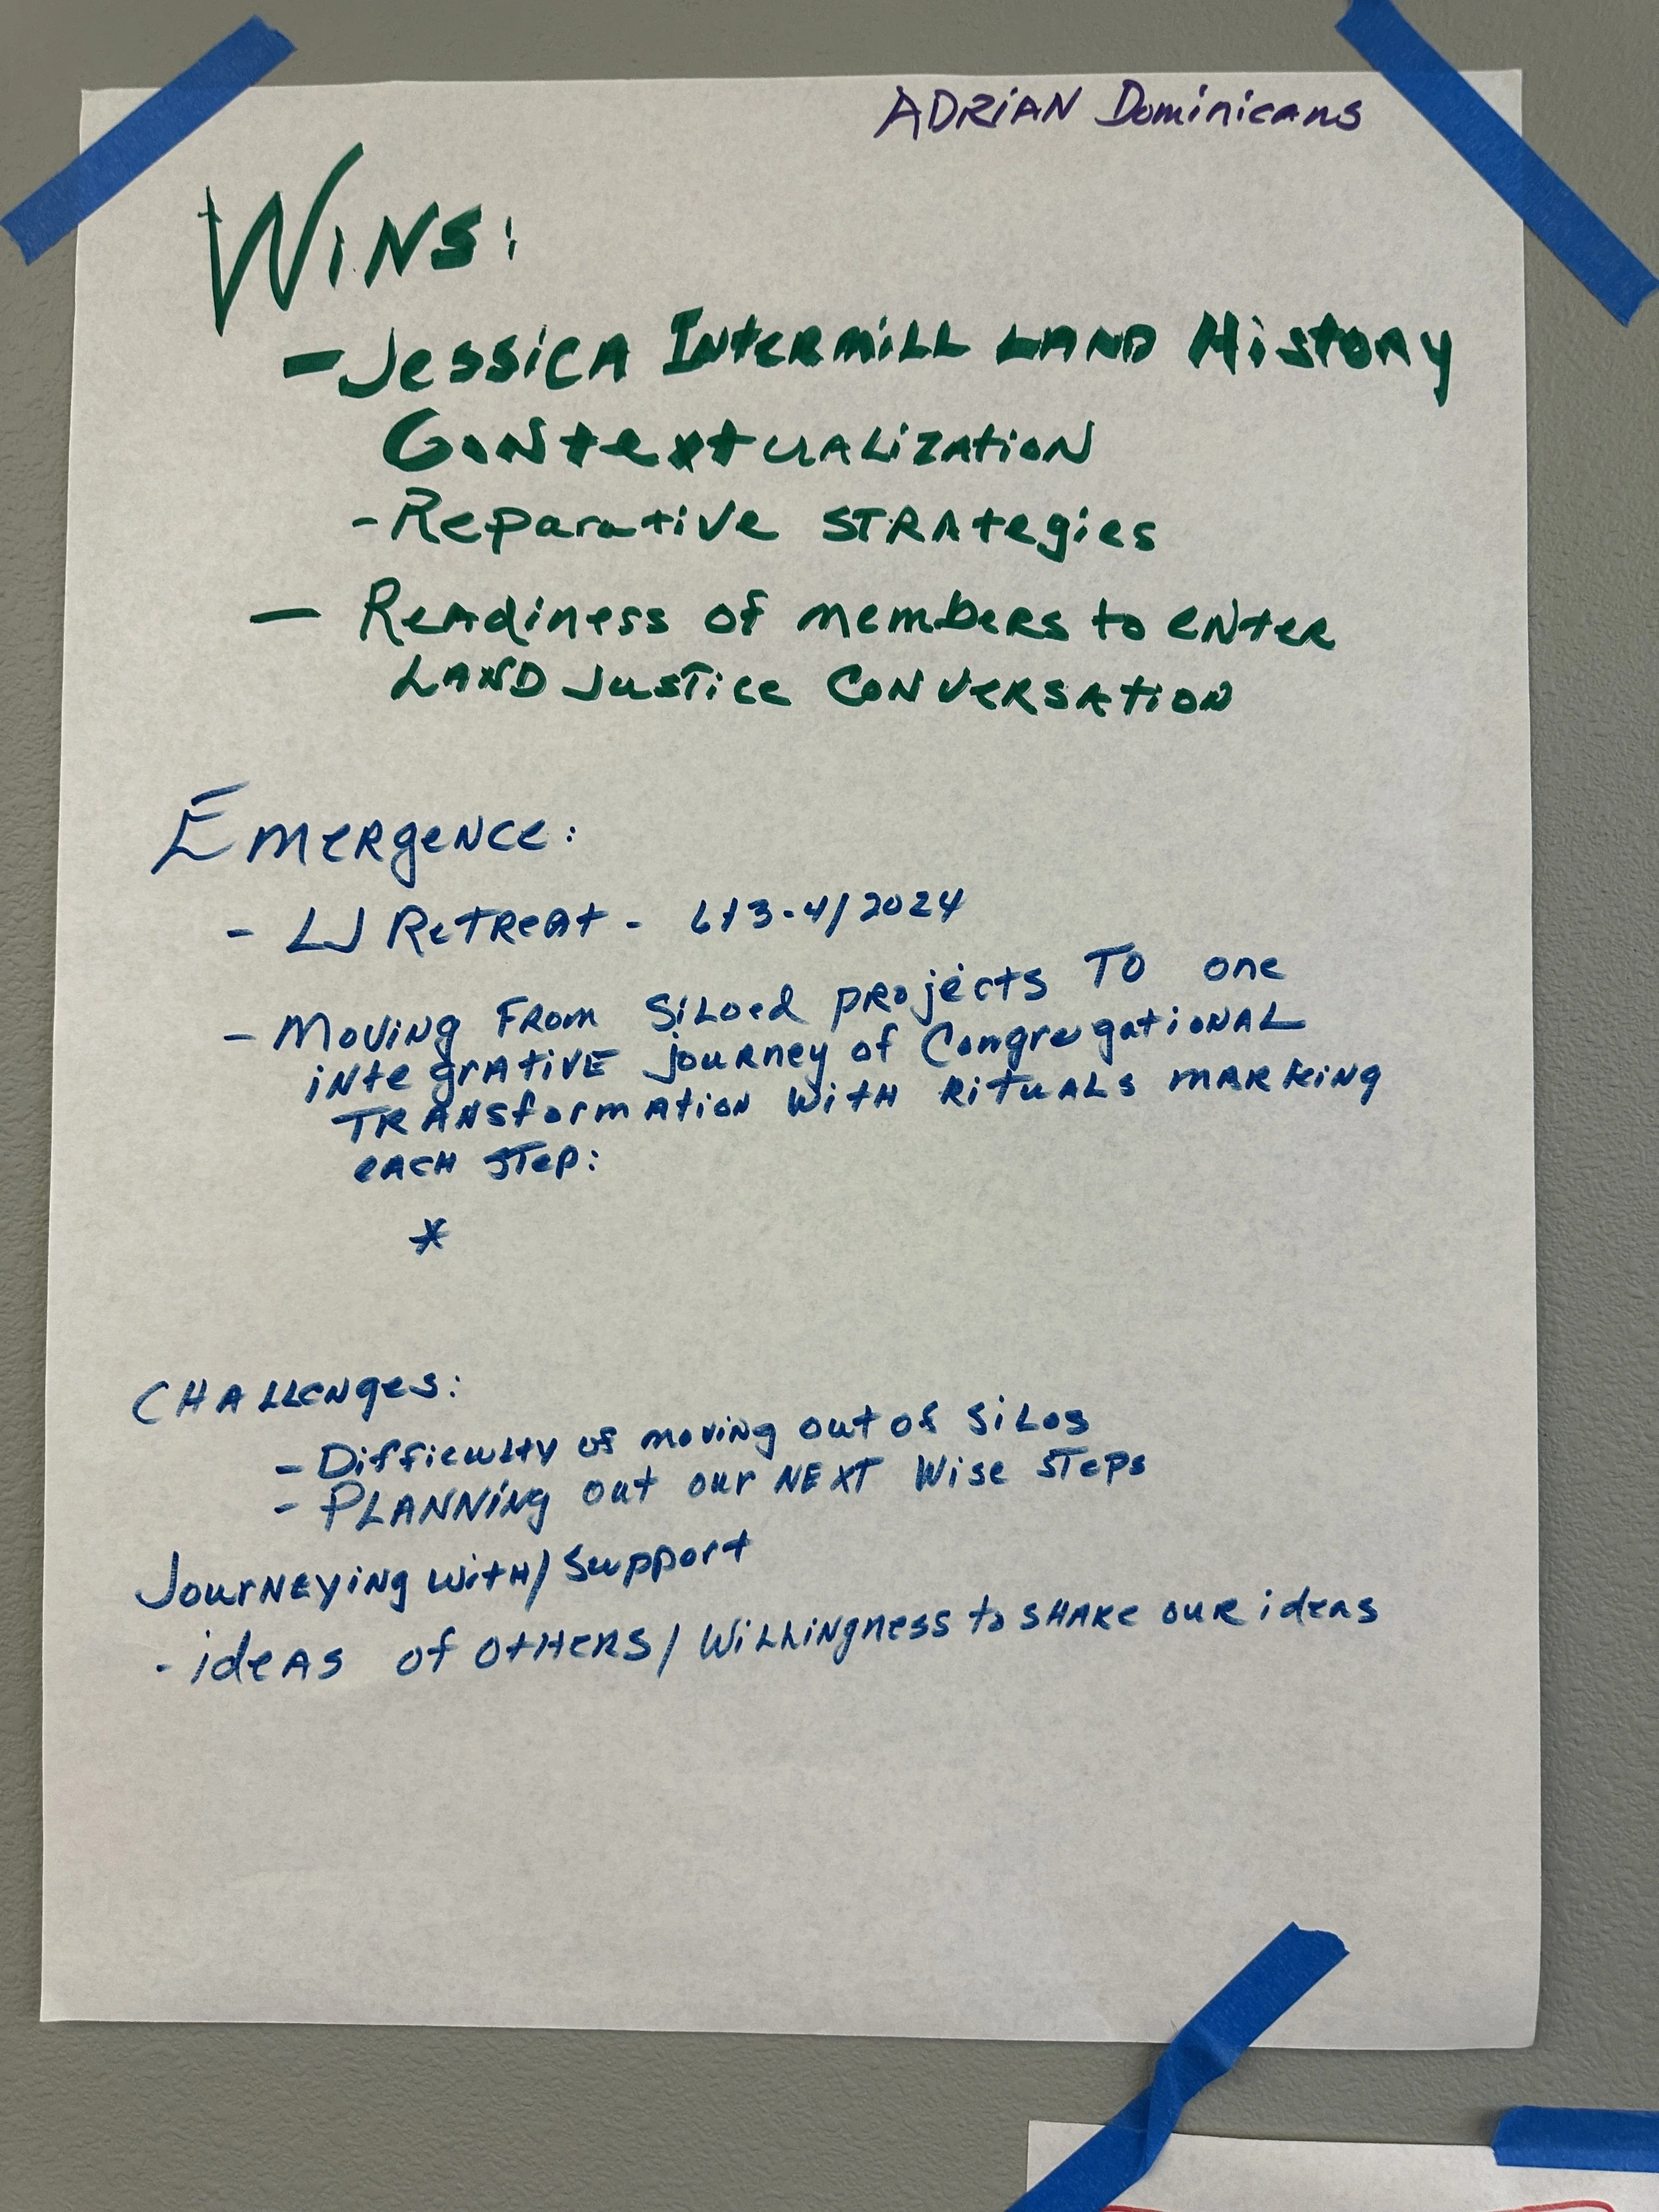 ADRIAN Dominicans
WINS:
- Jessica Intermill Land History
Contextualization
- Reparative Strategies
- Readiness of members to enter
Land Justice Conversation
Emergence:
- LJ Retreat - 6/3-4/2024
- Moving from siloed projects to one
integrative journey of Congregational
transformation with rituals marking
each step:
*
Challenges:
- Difficulty of moving out of silos
- Planning out our next wise steps
Journeying with/support
- ideas of others/willingness to share our ideas